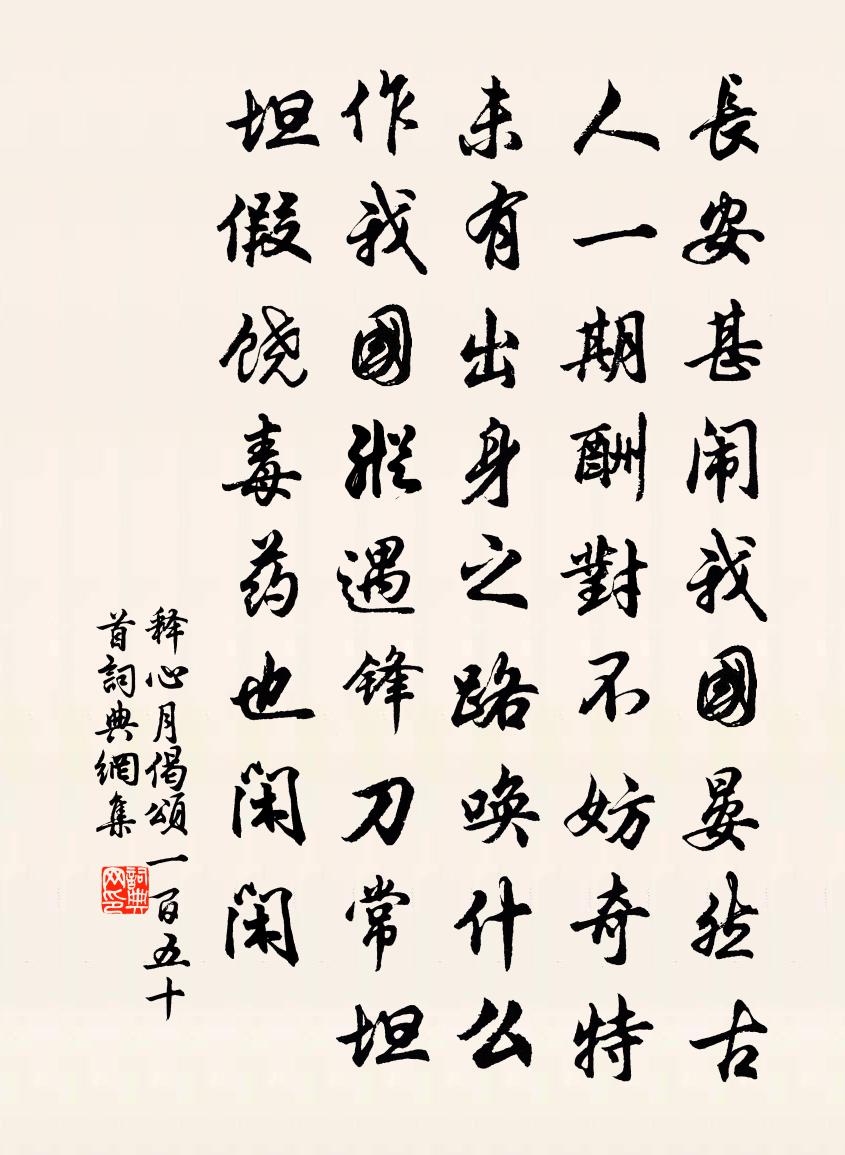 長安甚闹我國晏然古
人一期酬對不妨奇特
未有出身之路唤什么
作我國縱遇锋刀常坦
坦假饶毒药也闲闲
释心月偈頌一百五十
首詞典網集
詞典
网印